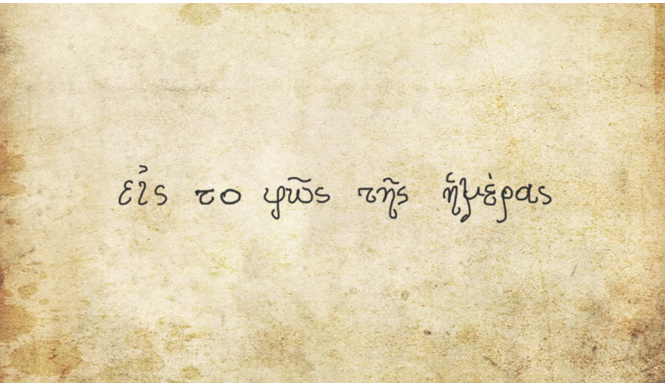 εἰς το φῶς τῆς ἡμέρας